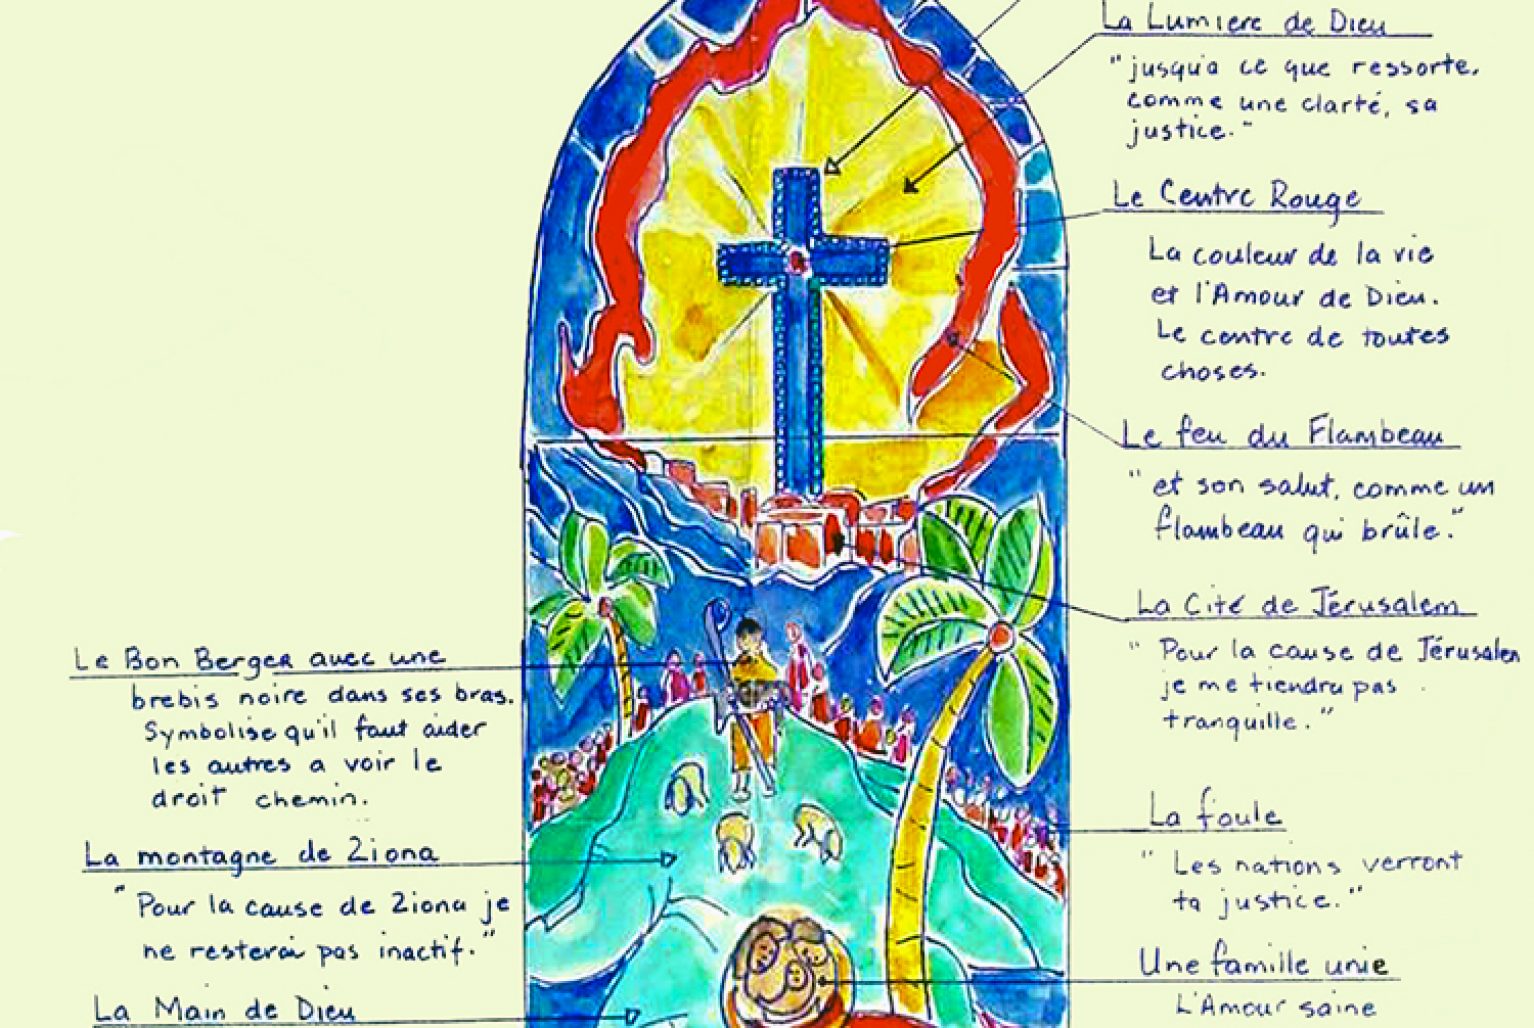 La Lumiere de Dieu
"jusqu'a ce que ressorte,
comme une clarté, sa
justice."
Le Centre Rouge
La couleur de la vie
et l'Amour de Dieu.
Le centre de toutes
choses.
Le feu du Flambeau
"et son salut, comme un
flambeau qui brûle."
La Cité de Jérusalem
"Pour la cause de Jérusalem
je me tiendra pas
tranquille."
La foule
"Les nations verront
ta justice."
Une famille unie
L'Amour saine
Le Bon Berger avec une
brebis noire dans ses bras.
Symbolise qu'il faut aider
les autres a voir le
droit chemin.
La montagne de Ziona
"Pour la cause de Ziona je
ne resterai pas inactif."
La Main de Dieu